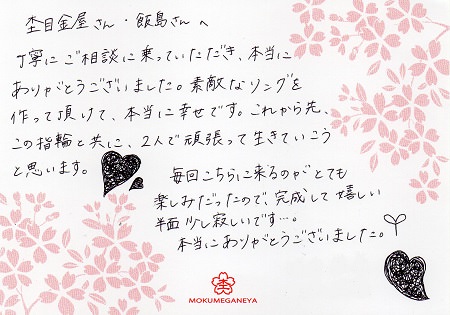 杢目金屋さん・飯島さんへ
丁寧にご相談に乗っていただき、本当に
ありがとうございました。素敵なリングを
作って頂けて、本当に幸せです。これから先、
この指輪と共に、2人で頑張って生きていこう
と思います。
毎回こちらに来るのがとても
楽しみだったので、完成して嬉しい
半面少し寂しいです…。
本当にありがとうございました。
MOKUMEGANEYA